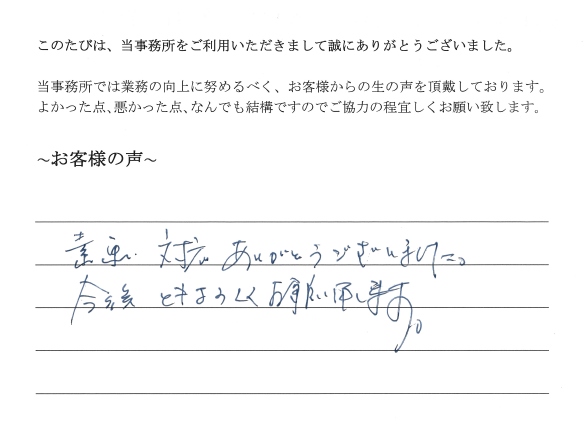 このたびは、当事務所をご利用いただきまして誠にありがとうございました。
当事務所では業務の向上に努めるべく、お客様からの生の声を頂戴しております。
よかった点、悪かった点、なんでも結構ですのでご協力の程宜しくお願い致します。
~お客様の声~
素早い対応ありがとうございました。
今後ともよろしくお願い申します。